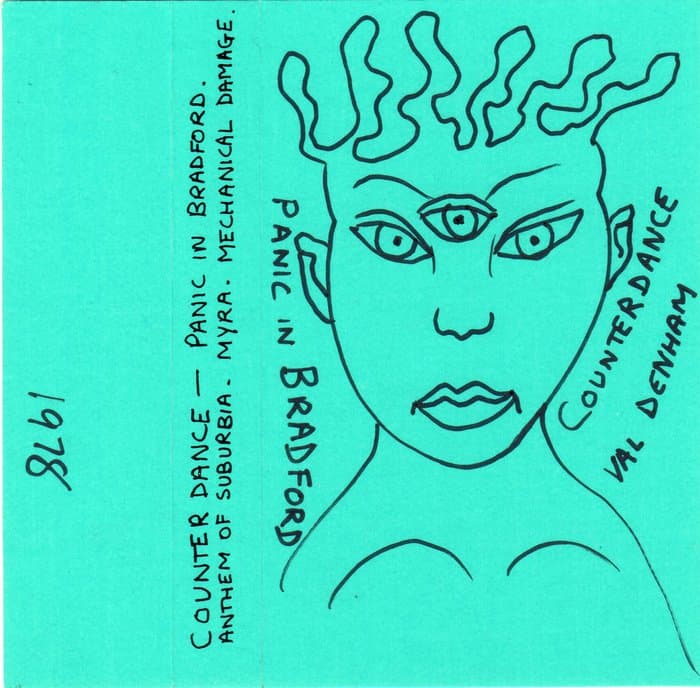 1978
COUNTER DANCE — PANIC IN BRADFORD.
ANTHEM OF SUBURBIA. MYRA. MECHANICAL DAMAGE.
PANIC IN BRADFORD
COUNTERDANCE
VAL DENHAM